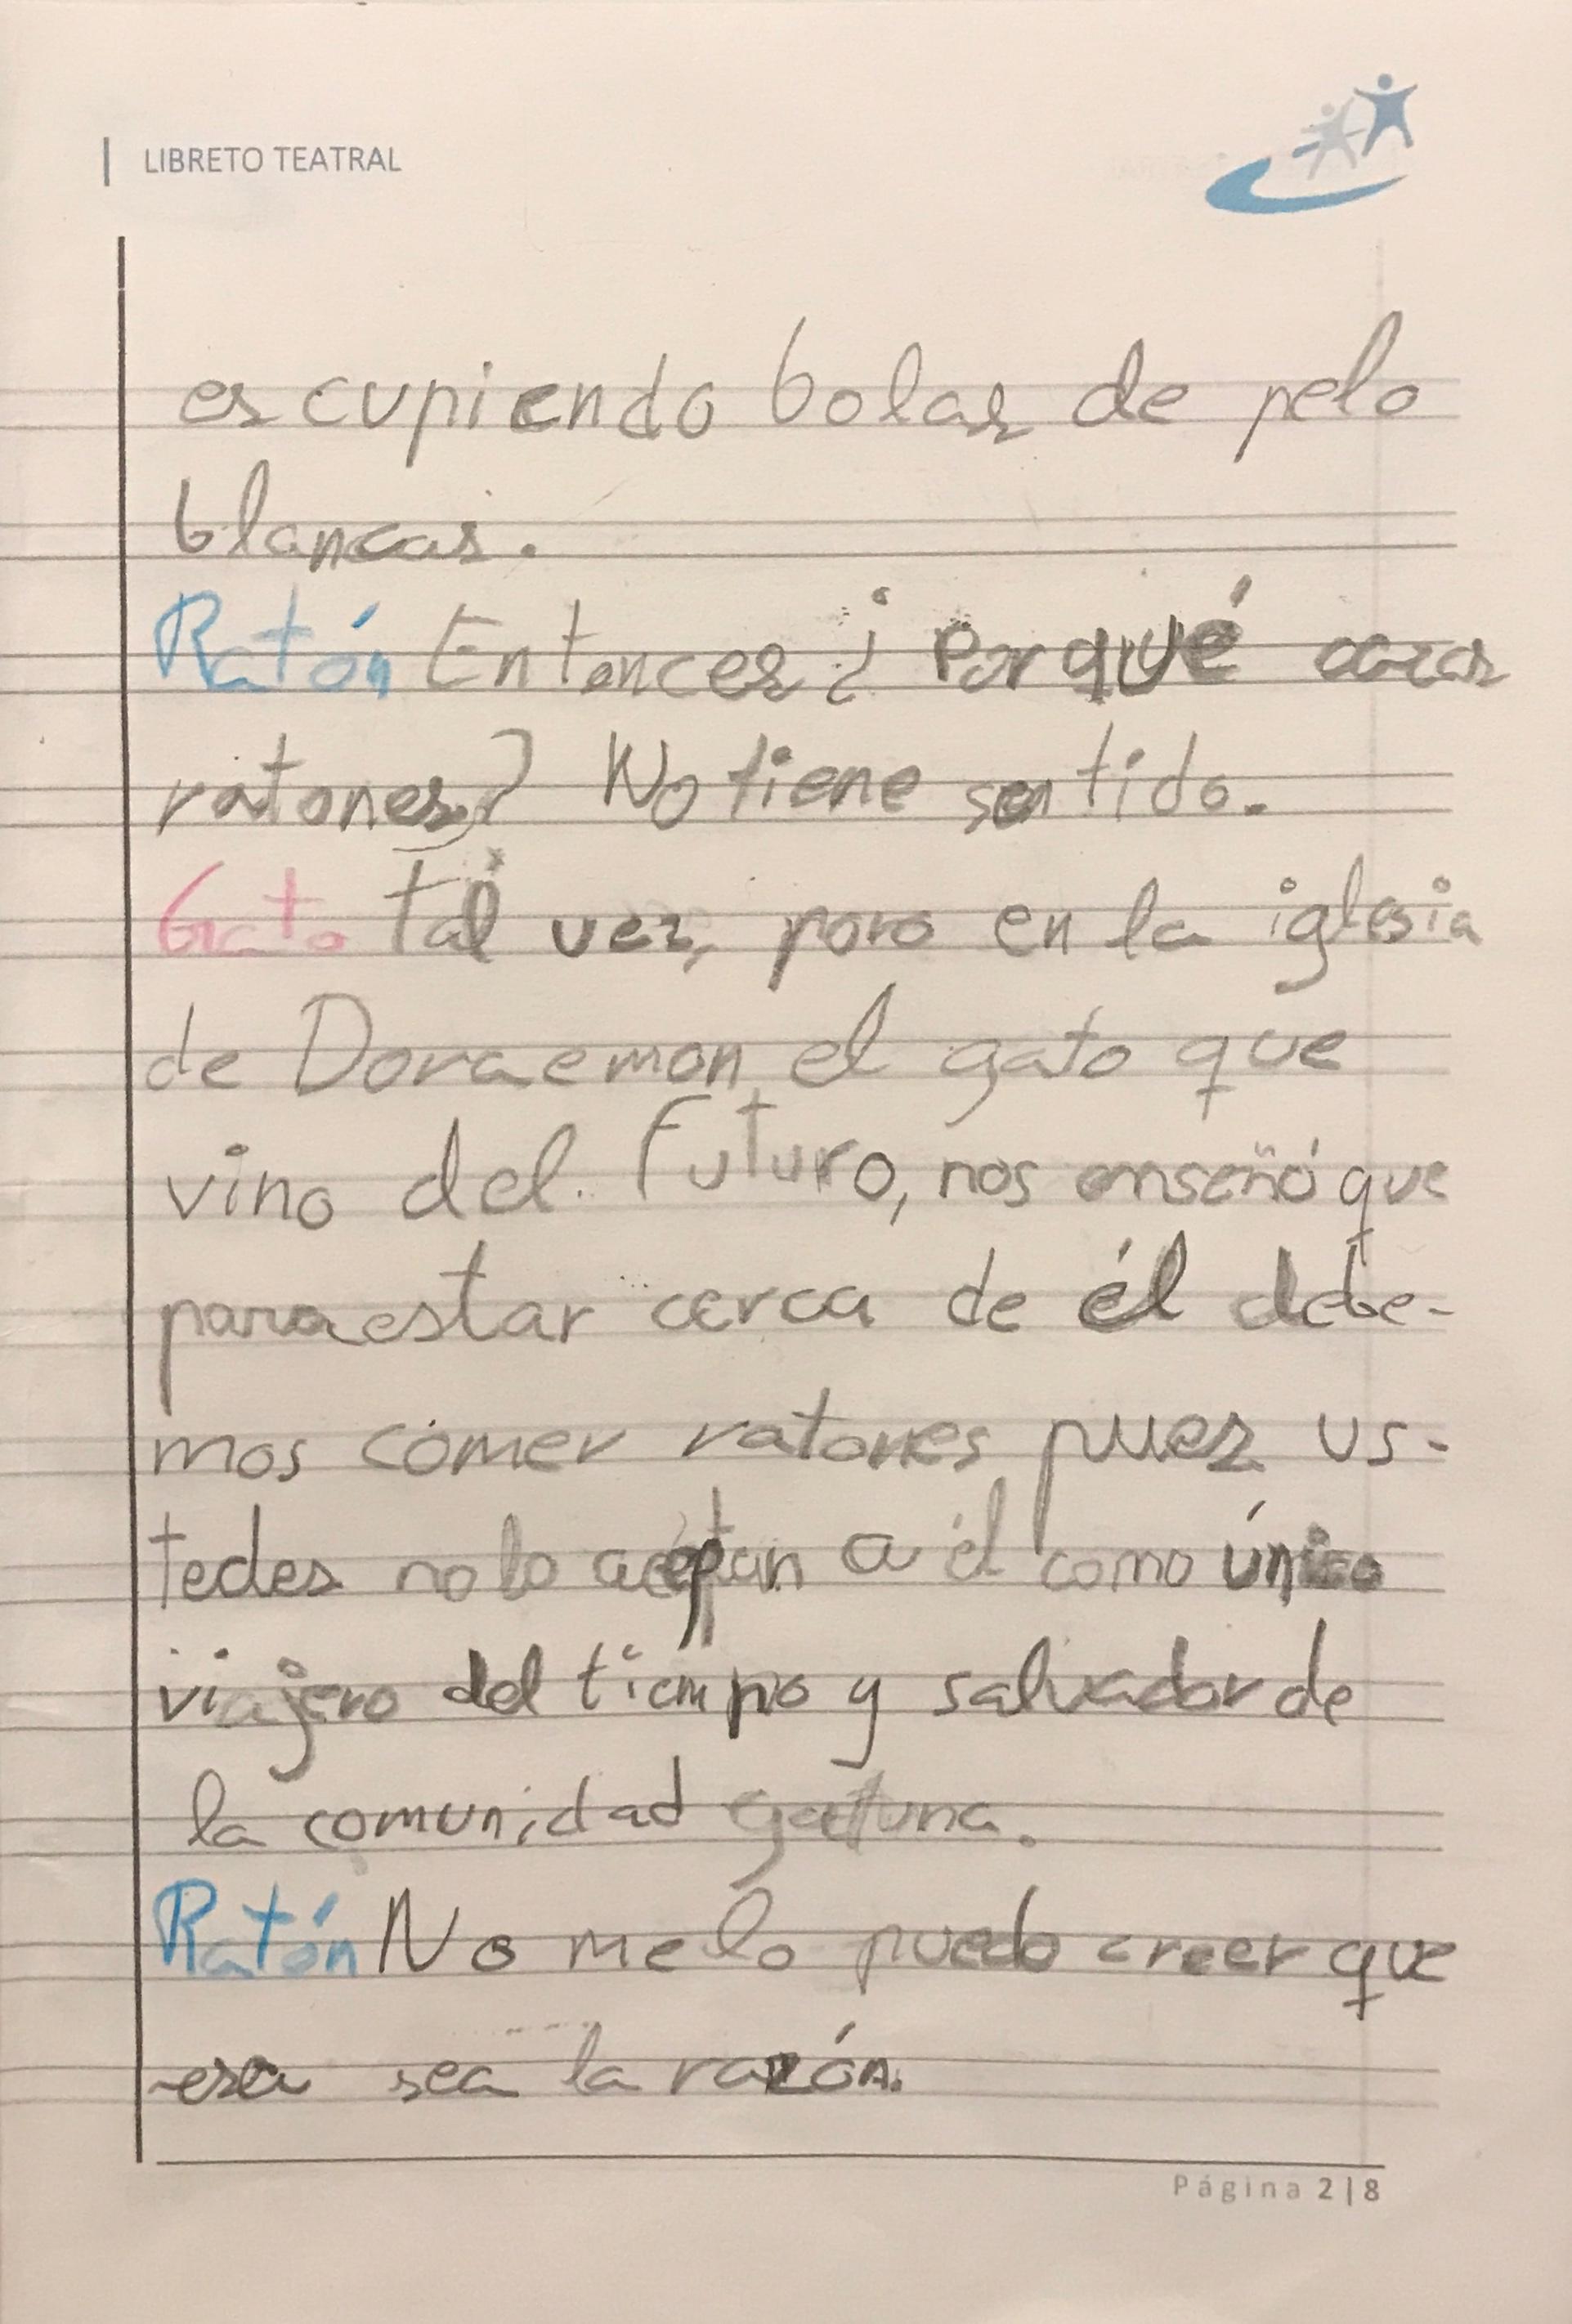 LIBRETO TEATRAL
escupiendo bolas de pelo
blancas.
Ratón Entonces ¿Por qué cazas
ratones? No tiene sentido.
Gato Tal vez, pero en la iglesia
de Doraemon, el gato que
vino del Futuro, nos enseñó que
para estar cerca de él debe-
mos comer ratones pues us-
tedes no lo aceptan a él como único
viajero del tiempo y salvador de
la comunidad gatuna.
Ratón No me lo puedo creer que
esa sea la razón.
Página 2|8